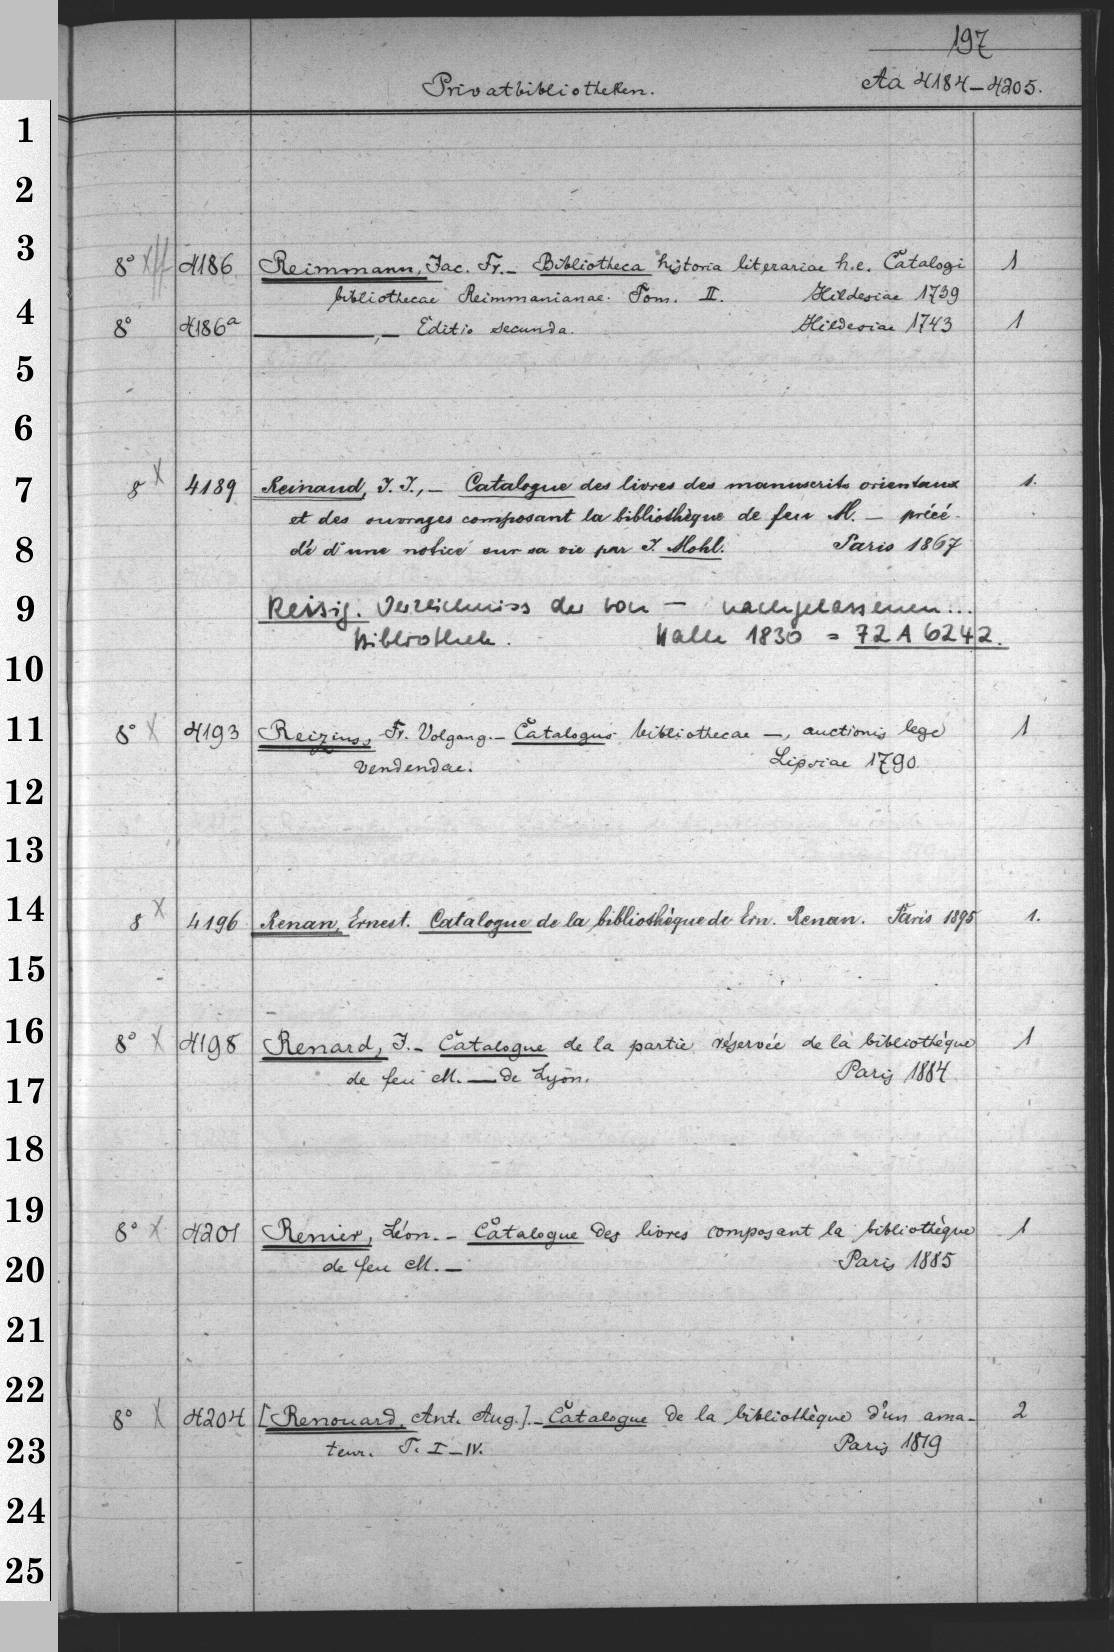 197
Privatbibliotheken. Aa 4184–4205.
1
2
3
8° 4186 Reimmann, Jac. Fr. – Bibliotheca historia literariae h.e. Catalogi 1
bibliothecae Reimmanianae. Tom. II. Hildesiae 1739
4
8° 4186a ———, – Editio secunda. Hildesiae 1743 1
5
6
7
8 X 4189 Reinaud, J. T., – Catalogue des livres des manuscrits orientaux 1.
et des ouvrages composant la bibliothèque de feu M. – précé-
8
dé d'une notice sur sa vie par J. Mohl. Paris 1867
9
Reisig. Verzeichniss der von – nachgelassenen...
Bibliothek. Halle 1830 = 72 A 6242.
10
11
8° X 4193 Reizius, Fr. Volgang. – Catalogus bibliothecae –, auctionis lege 1
vendendae. Lipsiae 1790
12
13
14
8 X 4196 Renan, Ernest. Catalogue de la bibliothèque de Ern. Renan. Paris 1895 1.
15
16
8° X 4198 Renard, J. – Catalogue de la partie réservée de la bibliothèque 1
de feu M. — de Lyon. Paris 1884
17
18
19
8° X 4201 Renier, Léon. – Catalogue des livres composant la bibliothèque 1
de feu M. – Paris 1885
20
21
22
8° X 4204 [Renouard, Ant. Aug.]. – Catalogue de la bibliothèque d'un ama- 2
teur. T. I–IV. Paris 1819
23
24
25